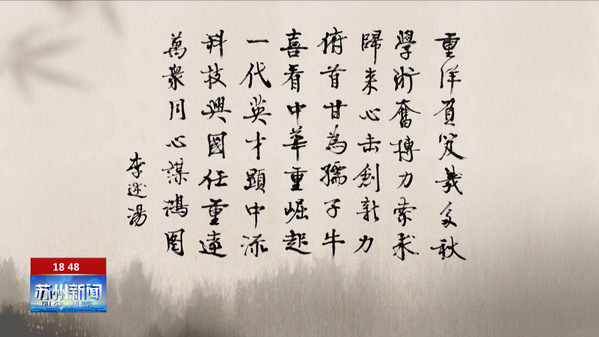 重洋負笈幾多秋
學術奮搏力索求
歸来心创新力
俯首甘為孺子牛
喜看中華重崛起
一代英才顯中流
科技興國任重遠
萬衆同心謀鴻圖
李述湯
18 48
苏州新闻